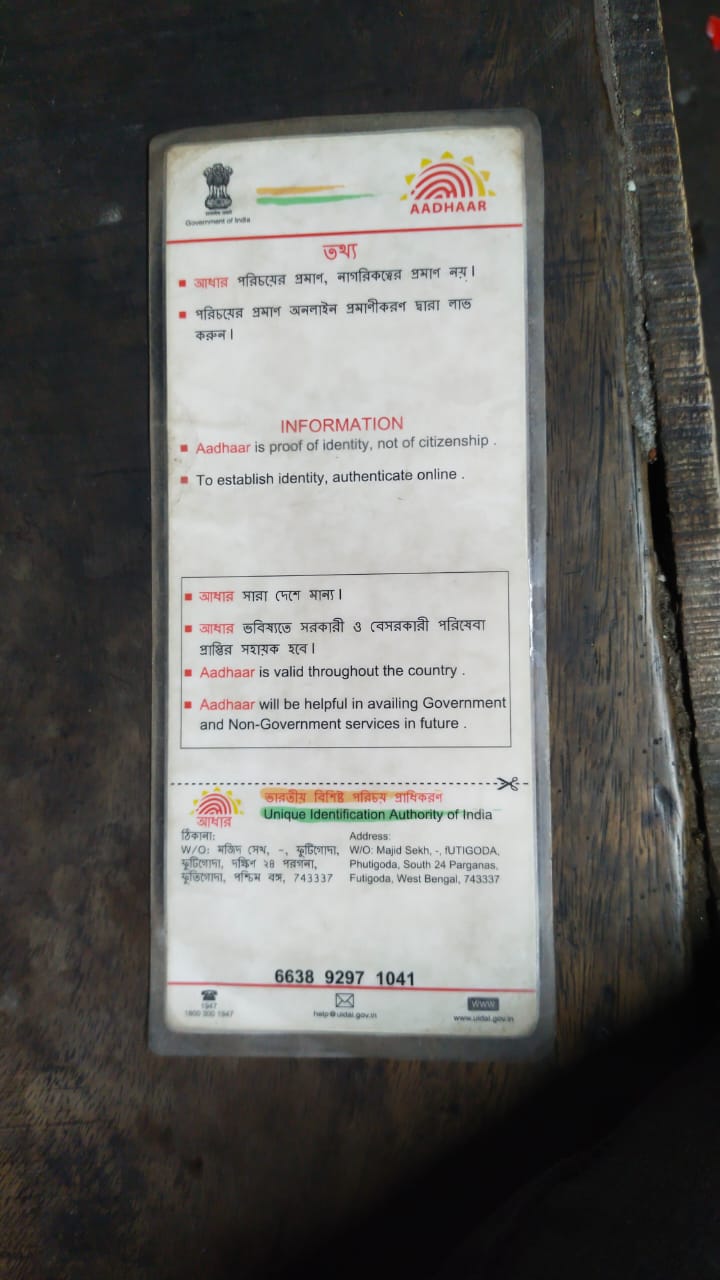 Government of India
AADHAAR
তথ্য
আধার পরিচয়ের প্রমাণ, নাগরিকত্বের প্রমাণ নয়।
পরিচয়ের প্রমাণ অনলাইন প্রমাণীকরণ দ্বারা লাভ
করুন।
INFORMATION
Aadhaar is proof of identity, not of citizenship .
To establish identity, authenticate online .
আধার সারা দেশে মান্য।
আধার ভবিষ্যতে সরকারী ও বেসরকারী পরিষেবা
প্রাপ্তির সহায়ক হবে।
Aadhaar is valid throughout the country .
Aadhaar will be helpful in availing Government
and Non-Government services in future .
ভারতীয় বিশিষ্ট পরিচয় প্রাধিকরণ
Unique Identification Authority of India
আধার
ঠিকানা:
W/O: মজিদ সেখ, -, ফুটিগোদা,
ফুটিগোদা, দক্ষিণ ২৪ পরগনা,
ফুতিগোদা, পশ্চিম বঙ্গ, 743337
Address:
W/O: Majid Sekh, -, fUTIGODA,
Phutigoda, South 24 Parganas,
Futigoda, West Bengal, 743337
6638 9297 1041
1947
1800 300 1947
help@uidai.gov.in
www
www.uidai.gov.in